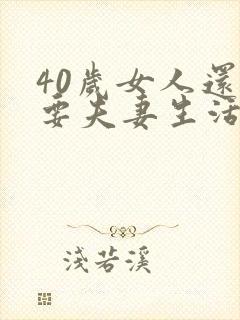 40歲女人還
要夫妻生活
淺若溪